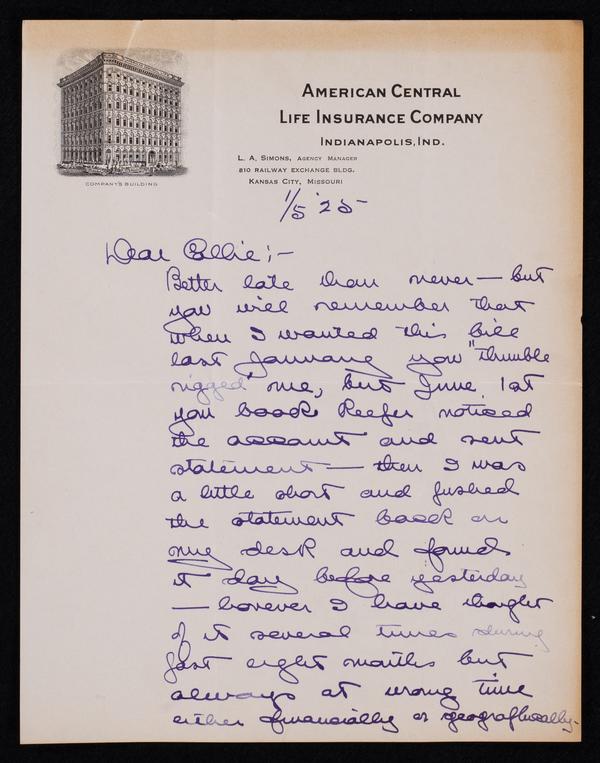 AMERICAN CENTRAL
LIFE INSURANCE COMPANY
INDIANAPOLIS, IND.
L. A. SIMONS, AGENCY MANAGER
810 RAILWAY EXCHANGE BLDG.
KANSAS CITY, MISSOURI
COMPANY'S BUILDING
1/5 '25
Dear Ellie:-
Better late than never — but
you will remember that
when I wanted this bill
last January you "thumble
rigged" me, but June 1st
you book Keefer noticed
the account and sent
statement — then I was
a little short and pushed
the statement back on
my desk and found
it day before yesterday
— horever I have thought
of it several times during
past eight months but
always at wrong time
either financially or geografhically.